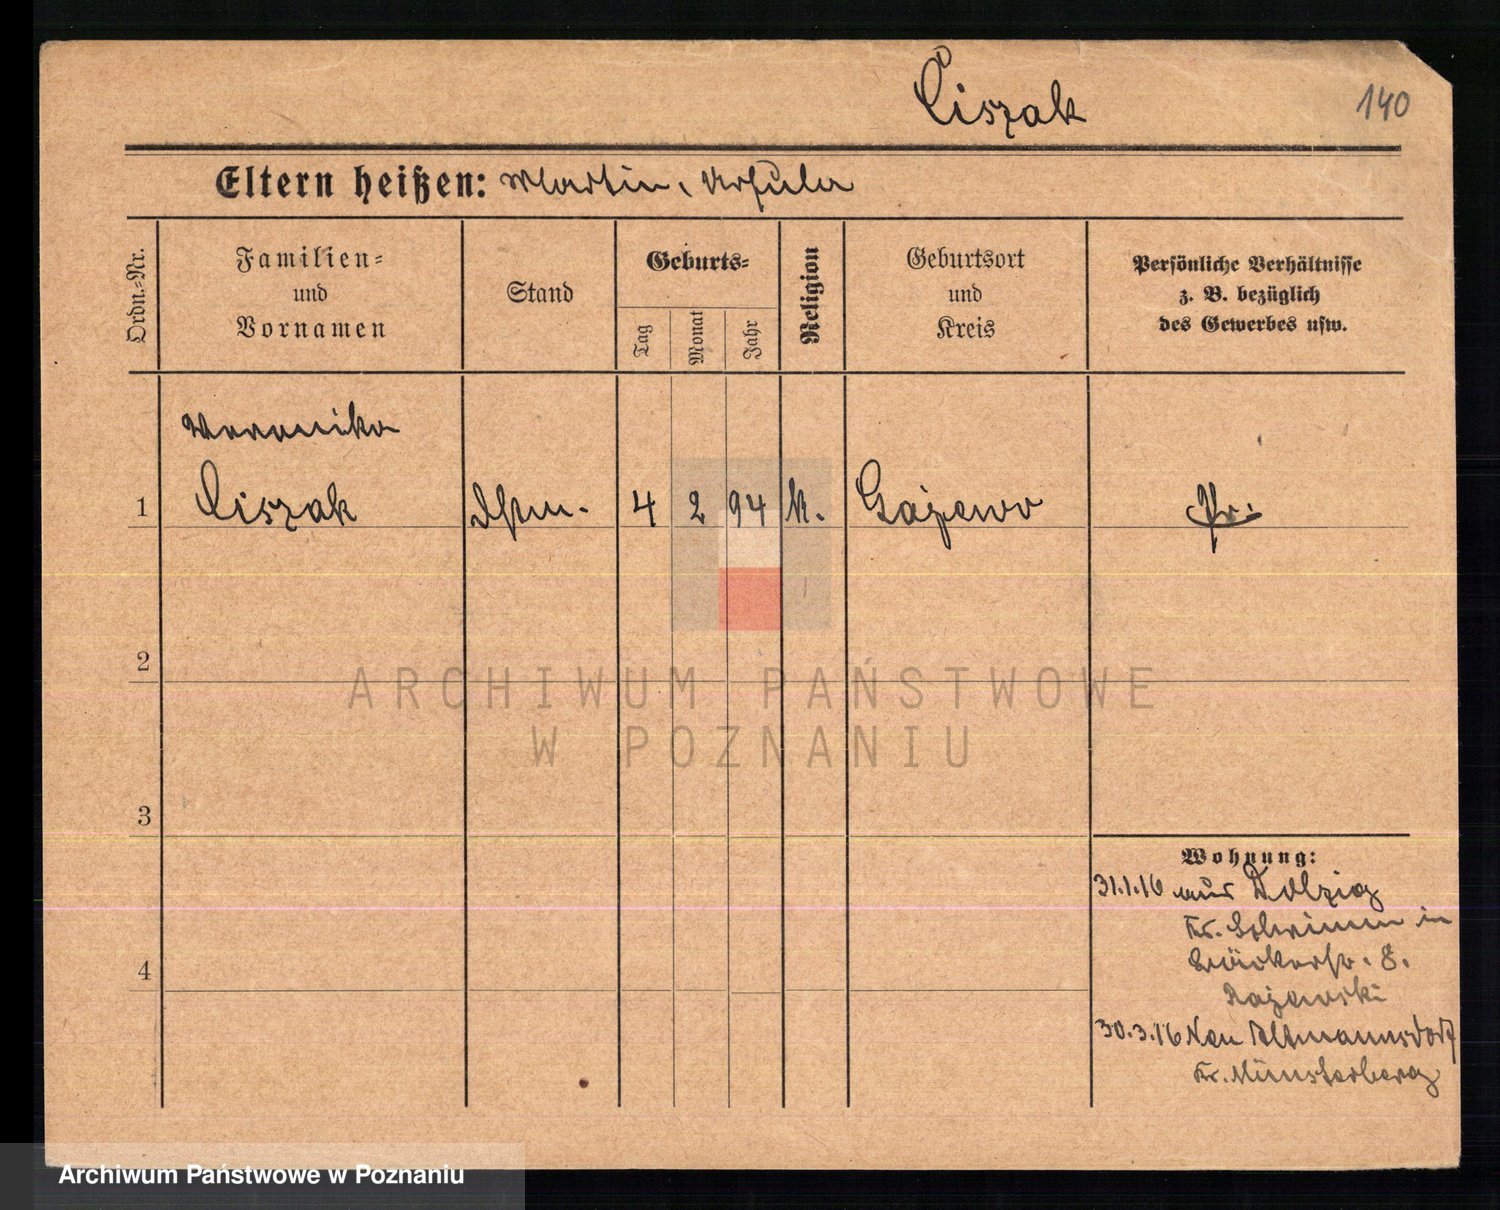 Ciszak
140
Eltern heißen: Martin, Ursula
Ordn.-Nr.
Familien-
und
Vornamen
Stand
Geburts-
Tag
Monat
Jahr
Religion
Geburtsort
und
Kreis
Persönliche Verhältnisse
z. B. bezüglich
des Gewerbes usw.
Veronika
1 Ciszak Dstm. 4 2 94 k. Gażewo Pr.
2
3
4
ARCHIWUM PAŃSTWOWE
W POZNANIU
Wohnung:
31.1.16 aus Dolzig
Kr. Schrimm in
Bäckerstr. 8.
30.3.16 Neu Altmannsdorf
Kr. Münsterberg
Archiwum Państwowe w Poznaniu